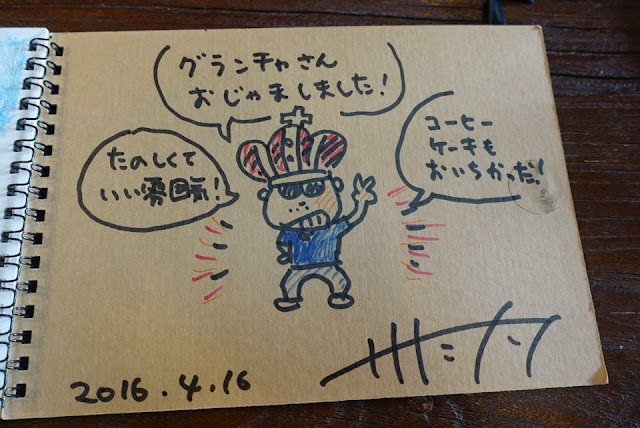 グランチャさん
おじゃましました!
たのしくて
いい雰囲気!
コーヒー
ケーキも
おいちかった!
2016.4.16